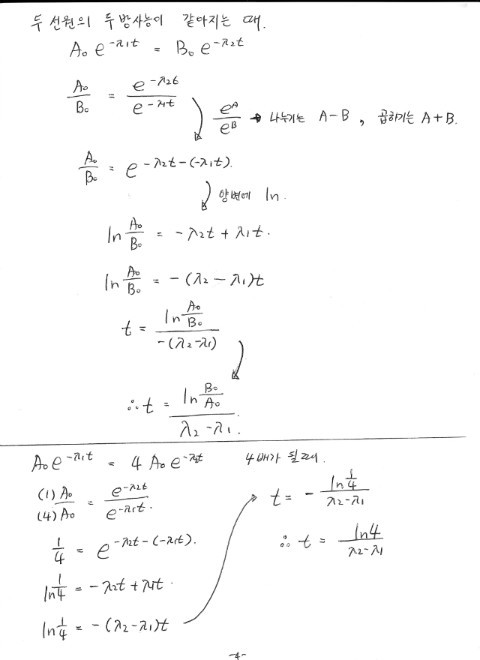 두 선원의 두 방사능이 같아지는 때.
A₀ e^-λ₁t = B₀ e^-λ₂t
A₀/B₀ = e^-λ₂t / e^-λ₁t
e^A/e^B → 나누기는 A-B , 곱하기는 A+B.
A₀/B₀ = e^-λ₂t-(-λ₁t).
양변에 ln.
ln A₀/B₀ = -λ₂t + λ₁t.
ln A₀/B₀ = -(λ₂-λ₁)t
t = ln A₀/B₀ / -(λ₂-λ₁)
∴ t = ln B₀/A₀ / λ₂-λ₁.
A₀e^-λ₁t = 4 A₀e^-λ₂t 4배가 될때.
(1)A₀/(4)A₀ = e^-λ₂t / e^-λ₁t.
1/4 = e^-λ₂t-(-λ₁t).
ln 1/4 = -λ₂t + λ₁t.
ln 1/4 = -(λ₂-λ₁)t
t = - ln 1/4 / λ₂-λ₁
∴ t = ln4 / λ₂-λ₁
-4-